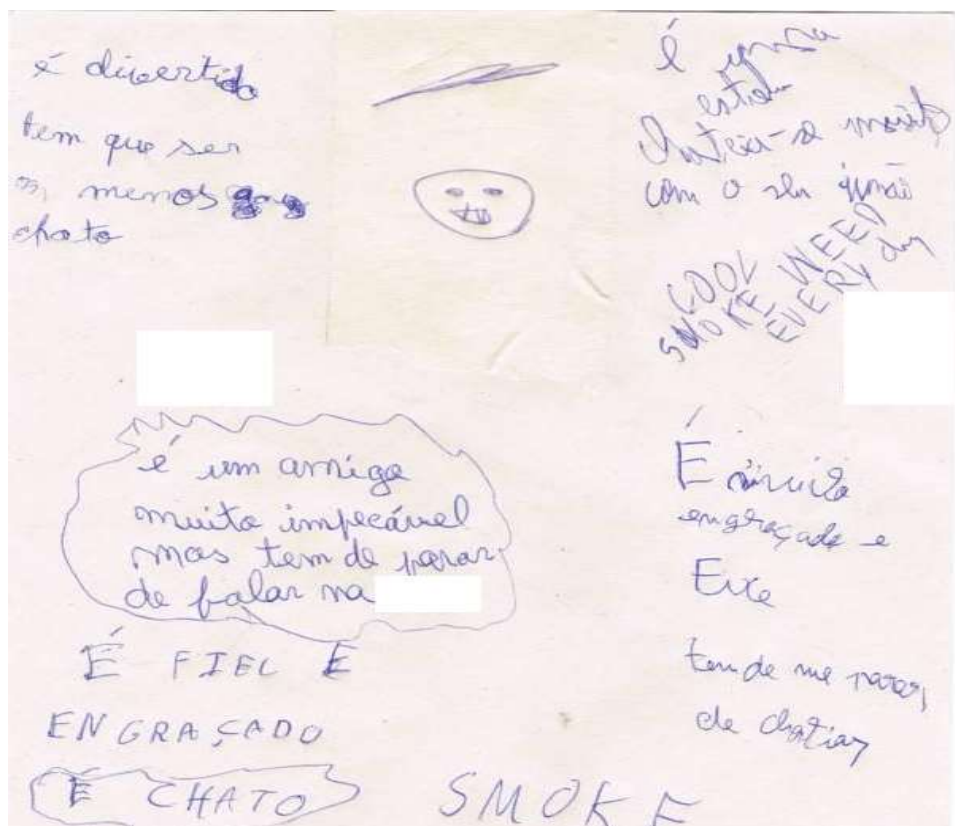 é divertido
tem que ser
menos
chato
É
Chateia-se muito
com o seu irmão
COOL
SMOKE WEED
EVERY day
é um amigo
muito impecável
mas tem de parar
de falar na
É muito
engraçado e
Fixe
tem de me parar
de chatiar
É FIEL E
ENGRAÇADO
É CHATO
SMOKE